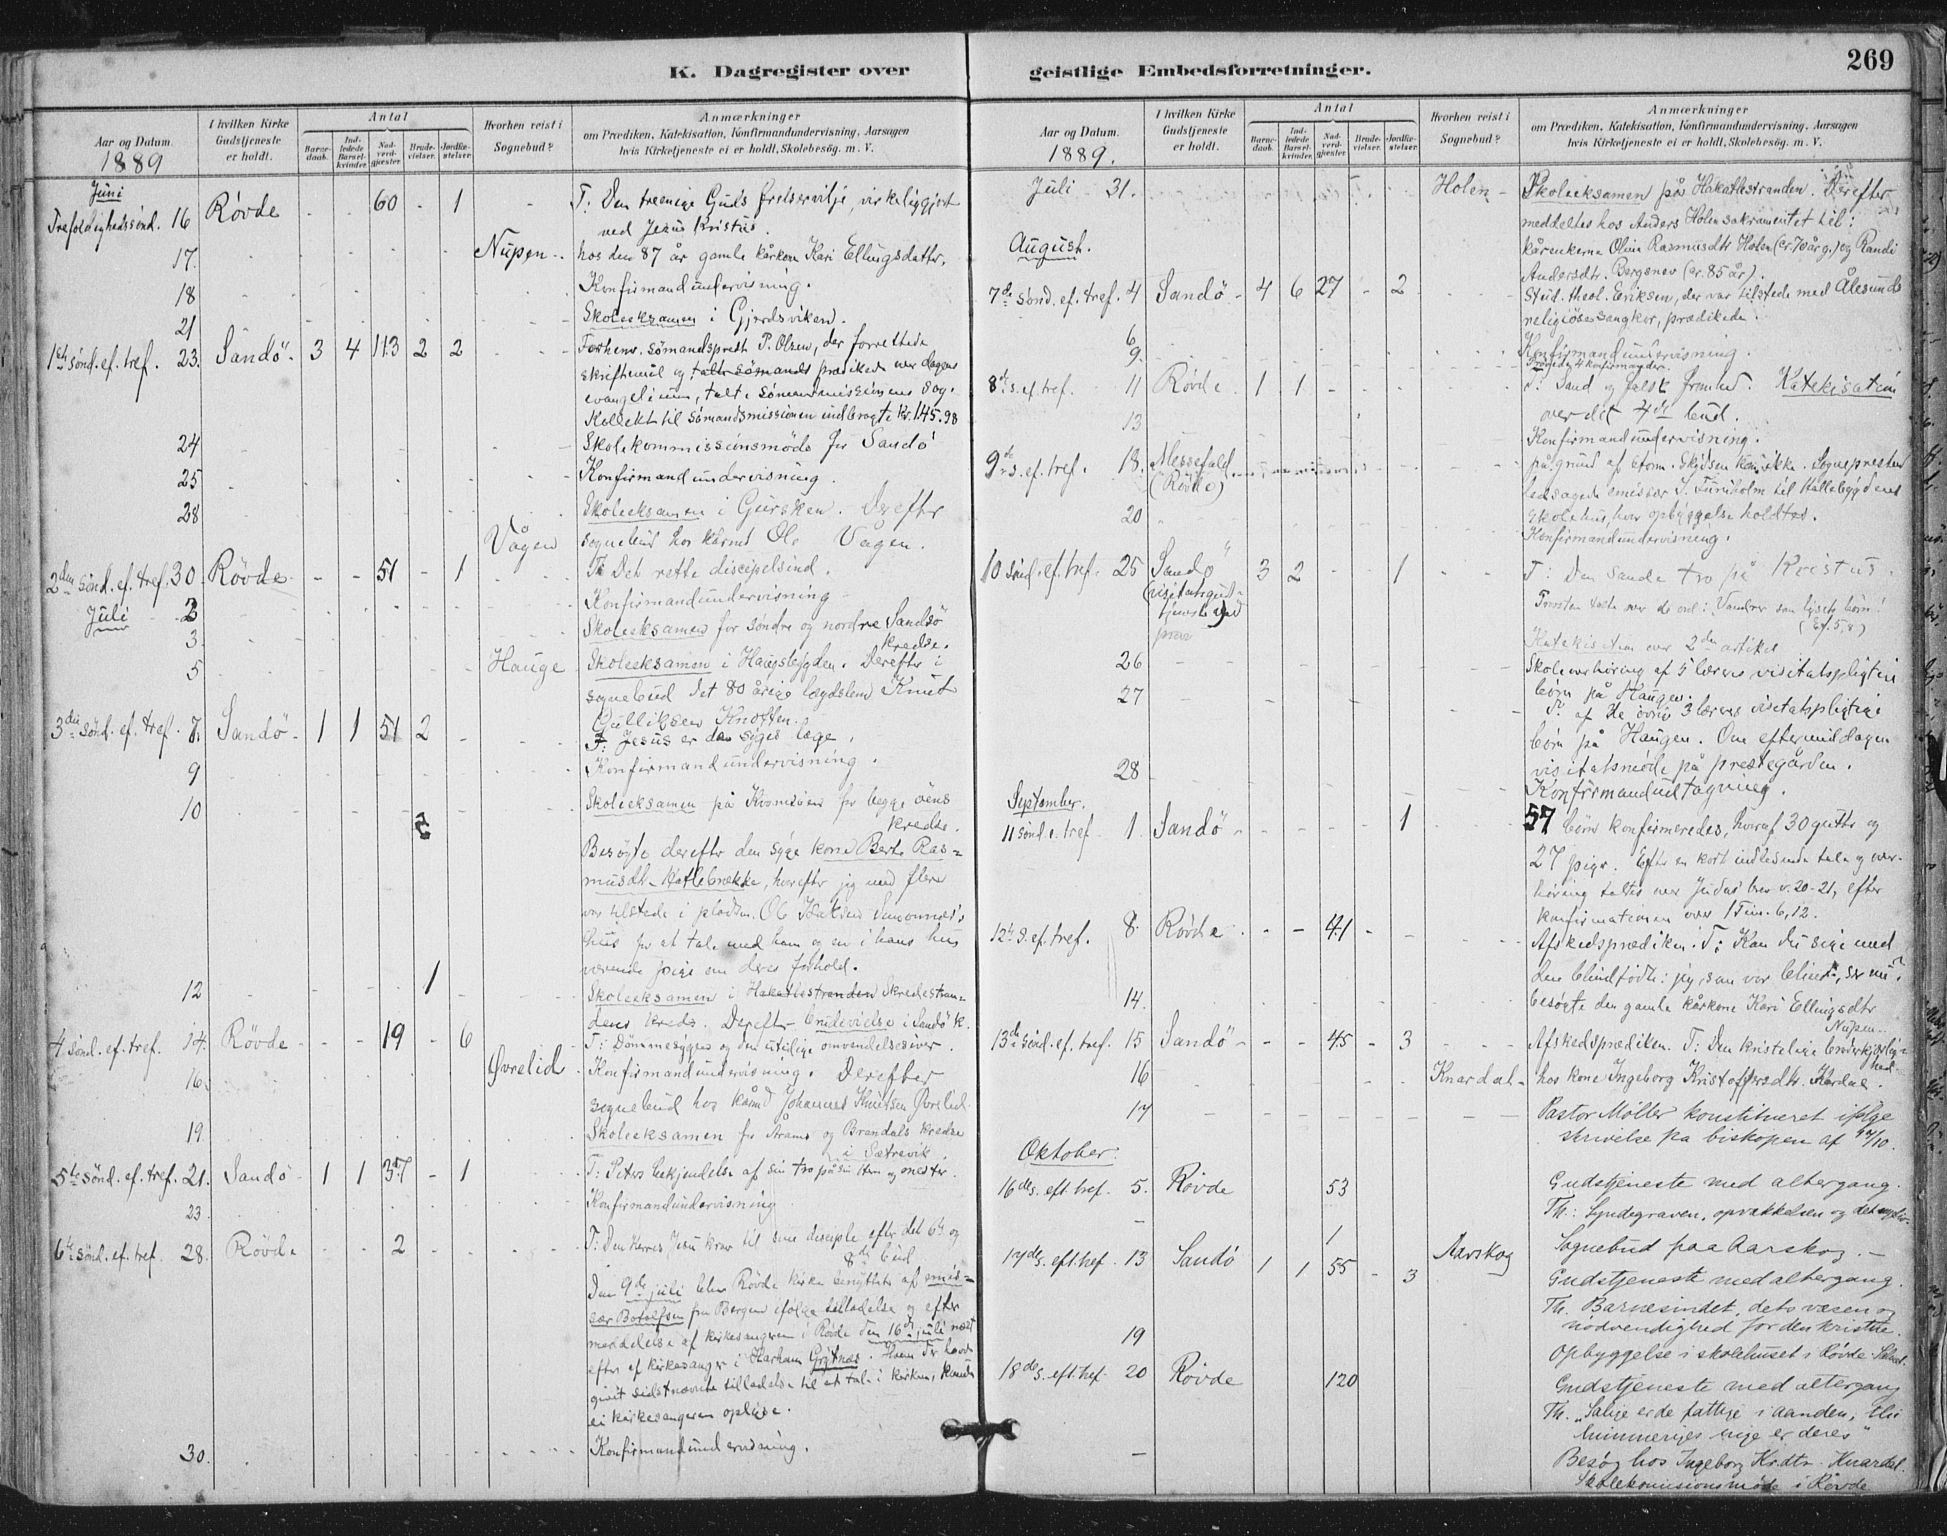 K. Dagregister over
Aar og Datum.
1889
I hvilken Kirke Gudstjeneste er holdt.
Antal
Barnedaab.
Indledede Barselkvinder.
Nadverdgjester.
Brudevielser.
Jordfæstelser.
Hvorhen reist i Sognebud?
Anmærkninger
om Prædiken, Katekisation, Konfirmandundervisning, Aarsagen
hvis Kirketjeneste ei er holdt, Skolebesøg. m. V.
Juni
Trefoldighedssönd. 16 Rövde - - 60 - 1 T: Den treenige Guds frelservilje, virkeliggjort
ved Jesus Kristus.
17. Nupen - hos den 87 år gamle kårkone Kari Ellingsdatter.
18 Konfirmandundervisning.
21 Skoleeksamen i Gjerdsviken.
1ste sönd. ef. tref. 23. Sandö - 3 4 113 2 2 Forhenv. sömandsprest P. Olsen, der forrettede
skriftemål og prædiked over dagens
evangelium, talte sömandsmissionens sag.
Kollekt til sömandsmissionen indbragte kr. 145.98
24 Skolekommissionsmöde for Sandö
25 Konfirmandundervisning.
28 Skoleeksamen i Gursken. Derefter
Vågen sognebud hos kårmd Ole Vågen.
2den sönd. ef. tref. 30. Rövde - - 51 - 1 T: Det rette discipelsind.
Juli 2 Konfirmandundervisning
3. Skoleeksamen for söndre og nordre Sandsö
kredse.
5 Hauge Skoleeksamen i Haugsbygden. Derefter i
sognebud det 80 årige lægdslem Knut
Gulliksen Knotten.
3die sönd. ef. tref. 7. Sandö - 1 1 51 2 - T: Jesus er den syges læge.
9 Konfirmandundervisning.
10 Skoleeksamen på Kvamsöen for begge öens
kredse.
Besögte derefter den syge kone Berte Rasmusdt.
, hvorefter jeg med flere
var tilstede i pladsm. Ole
hus for at tale med ham og en i hans hus
værende pige om deres forhold.
12 1 Skoleeksamen i Hakallestranden Skredestrandens
kreds. Derefter brudevielse i Sandö k.
4 sönd. ef. tref. 14. Rövde - - 19 - 6 T: Dömmesygen og den utidige omvendelsesiver.
16. Øvrelid Konfirmandundervisning. Derefter
sognebud hos kårmd Johannes Knutsen Øvrelid.
19 Skoleeksamen for Årams og Brandals kredse
i Sætrevik
5te sönd. ef. tref. 21. Sandö - 1 1 37 - 1 T: Peters bekjendelse af sin tro på sin Herre og mester.
23. Konfirmandundervisning
6te sönd. ef. tref. 28. Rövde - - 2 T: Den Herres Jesu krav til sine disciple efter det 6te og
8de bud
Den 9de juli blev Rövde kirke benyttet af emissær
Botolfsen fra Bergen ifölge tilladelse og efter
meddelelse af kirkesangeren i Rövde den 16de juli næst
efter af kirkesanger i Harham Grytnes. Hvem der havde
givet sidstnævnte tilladelse til at tale i kirken, kunde
ei kirkesangeren oplyse.
30. Konfirmandundervisning.
geistlige Embedsforretninger.
269
Aar og Datum.
1889.
I hvilken Kirke Gudstjeneste er holdt.
Antal
Barnedaab.
Indledede Barselkvinder.
Nadverdgjester.
Brudevielser.
Jordfæstelser.
Hvorhen reist i Sognebud?
Anmærkninger
om Prædiken, Katekisation, Konfirmandundervisning, Aarsagen
hvis Kirketjeneste ei er holdt, Skolebesøg. m. V.
Juli 31. Holen - Skoleeksamen på Hakallestranden. Derefter
meddeltes hos Anders Holen sakramentet til:
kårenkerne Oline Rasmusdtr. Holen (cr. 70 år g.) og Randi
August. Andersdtr. Bergsnev (cr. 85 år).
7de sönd. ef. tref. 4 Sandö - 4 6 27 - 2 Stud. theol. Eriksen, der var tilstede med Ålesunds
religiöse sangkor, prædikede.
6. Konfirmandundervisning.
9. 4 konfirmander.
8de s. ef. tref. 11 Rövde 1 1 - T: Sand og falsk fromhed. Katekisation
over det 4de bud.
13 Konfirmandundervisning.
9de s. ef. tref. 18. Messefald (Rövde) på grund af storm. Skydsen kom ikke. Sognepresten
ledsagede emissær J. Turnholm til Hallebygdens
skolehus, hvor opbyggelse holdtes.
20 Konfirmandundervisning.
10 sönd. ef. tref. 25 Sandö 3 2 - - 1 T: Den sande tro på Kristus.
(visitatsgudstjeneste ved
Provsten talte over de ord: Vandrer som lysets börn! (Ef. 5,8)
Katekisation over 2den artikel
26 Skoleoverhöring af 5 læreres visitatspligtige
börn på Haugen.
27 af de övrige 3 læreres visitatspligtige
börn på Haugen. Om eftermiddagen
visitatsmöde på prestegården.
28 Konfirmandudtagning.
September.
11 sönd. e. tref. 1. Sandö - 1 57 börn konfirmeredes, hvoraf 30 gutter og
27 piger. Efter en kort indledende tale og overhöring
taltes over Judas' brev v. 20-21, efter
konfirmationen over 1 Tim. 6,12.
12te S. ef. tref. 8. Rövde - - 41 - Afskedsprædiken. T: Kan du sige med
den blindfödte: jeg, som var blind, ser nu?
14. besögte den gamle kårkone Kari Ellingsdtr
Nupen.
13de sönd. ef. tref. 15 Sandö - - - 45 - 3 Afskedsprædiken. T: Den kristelige broderkjærlighed.
16 Knardal - hos kone Ingeborg Kristoffersdtr. Knardal.
17 Pastor Möller konstitueret ifölge
skrivelse fra biskopen af
Oktober.
16de s. eft. tref. 5. Rövde 53 Gudstjeneste med altergang.
Th.: Syndegraven, opvækkelsen og det nye liv.
- 1 Aarskog Sognebud paa Aarskog. -
17de s. eft. tref. 13 Sandö 1 1 55 - 3 Gudstjeneste med altergang.
Th. Barnesindet, dets væsen og
nödvendighed for den kristne.
19 Opbyggelse i skolehuset i Rövde
18de s. eft. tref. 20 Rövde 120 Gudstjeneste med altergang
Th. „Salige er de fattige i aanden, thi
himmeriges rige er deres"
- Besög hos Ingeborg Krdtr. Knardal.
Skolekomisionsmöde i Rövde